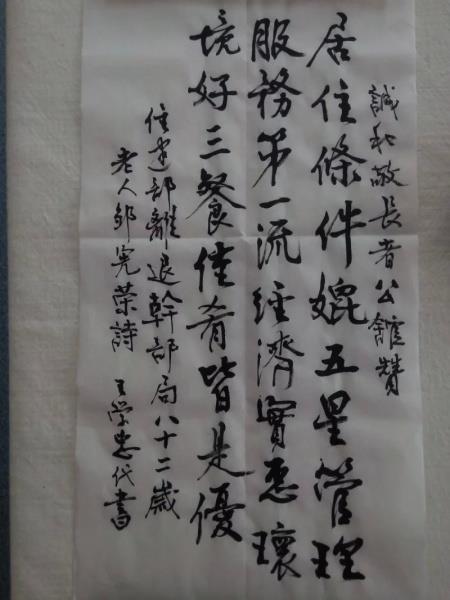 誠和敬長者公館贊
居住條件媲五星管理
服務第一流經濟實惠環
境好三餐佳肴皆是優
住建部離退幹部局八十二歲
老人鄒憲榮詩 王學忠代書